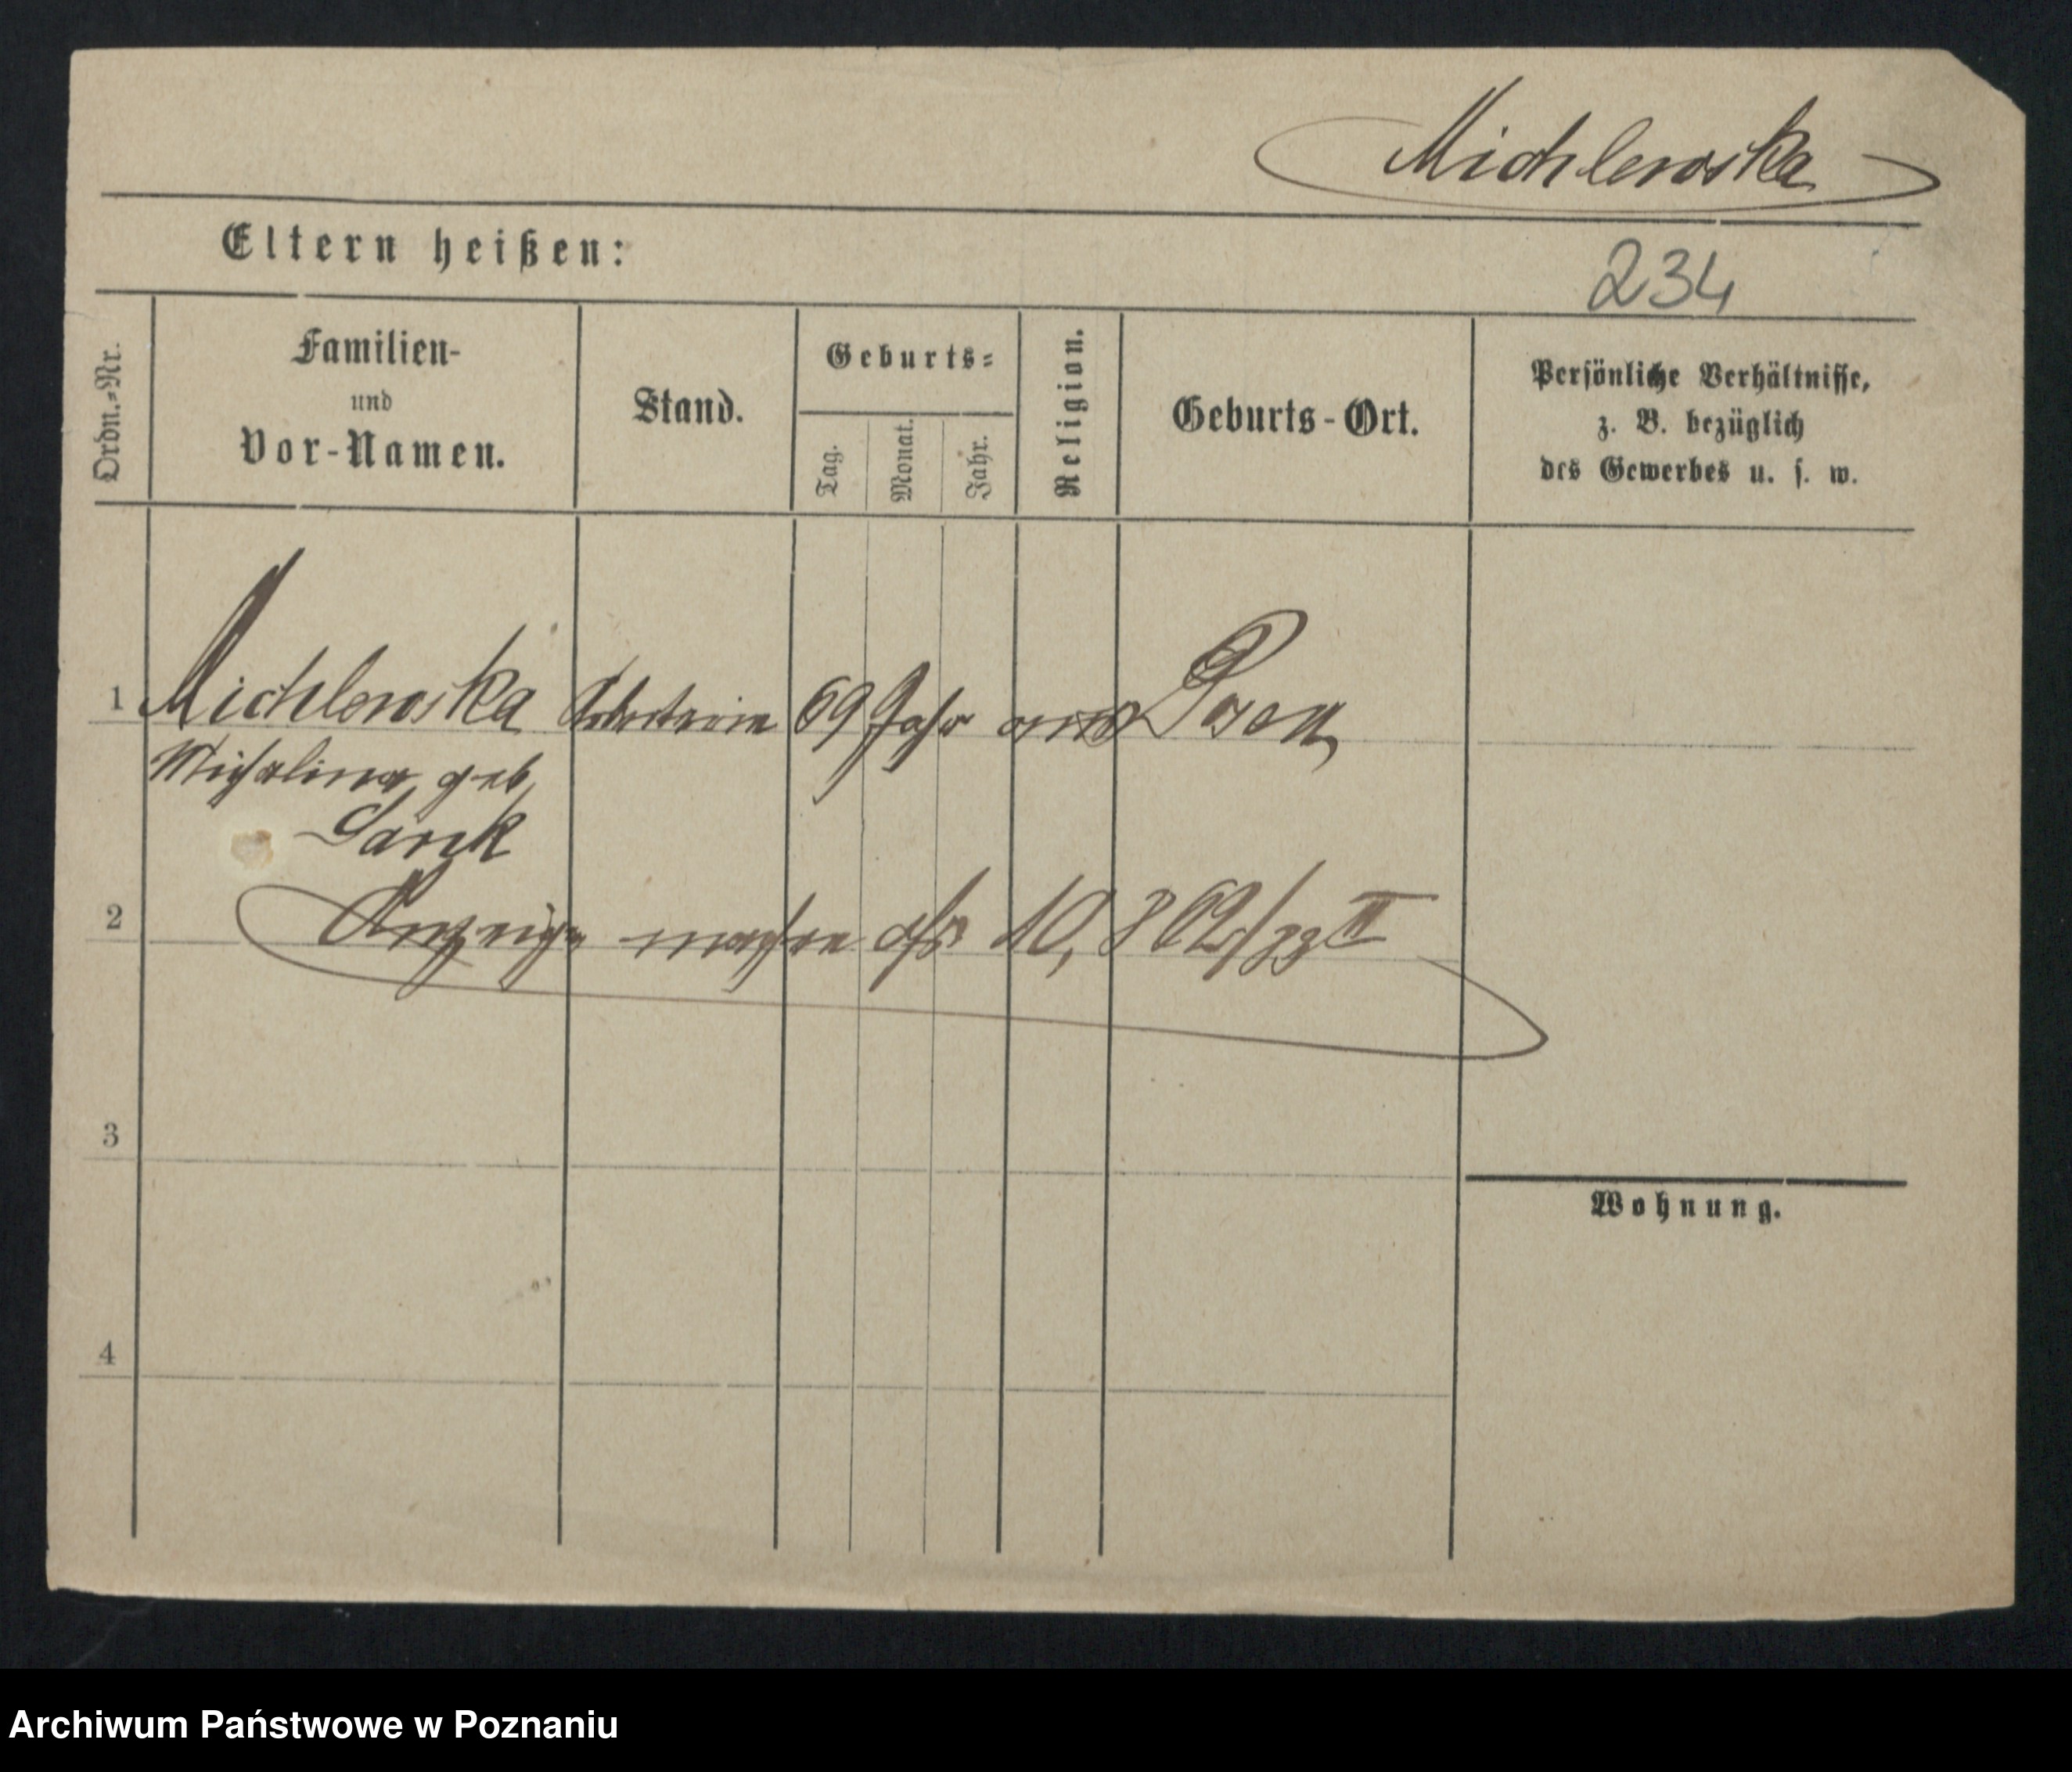 Michlewska
Eltern heißen:
234
Ordn.-Nr.
Familien-
und
Vor-Namen.
Stand.
Geburts-
Tag.
Monat.
Jahr.
Religion.
Geburts-Ort.
Persönliche Verhältnisse,
z. B. bezüglich
des Gewerbes u. s. w.
1 Michlewska Arbeiterin 69 Jahr Posen,
Michalina geb.
2 Anzeige 10, 8
3
Wohnung.
4
Archiwum Państwowe w Poznaniu